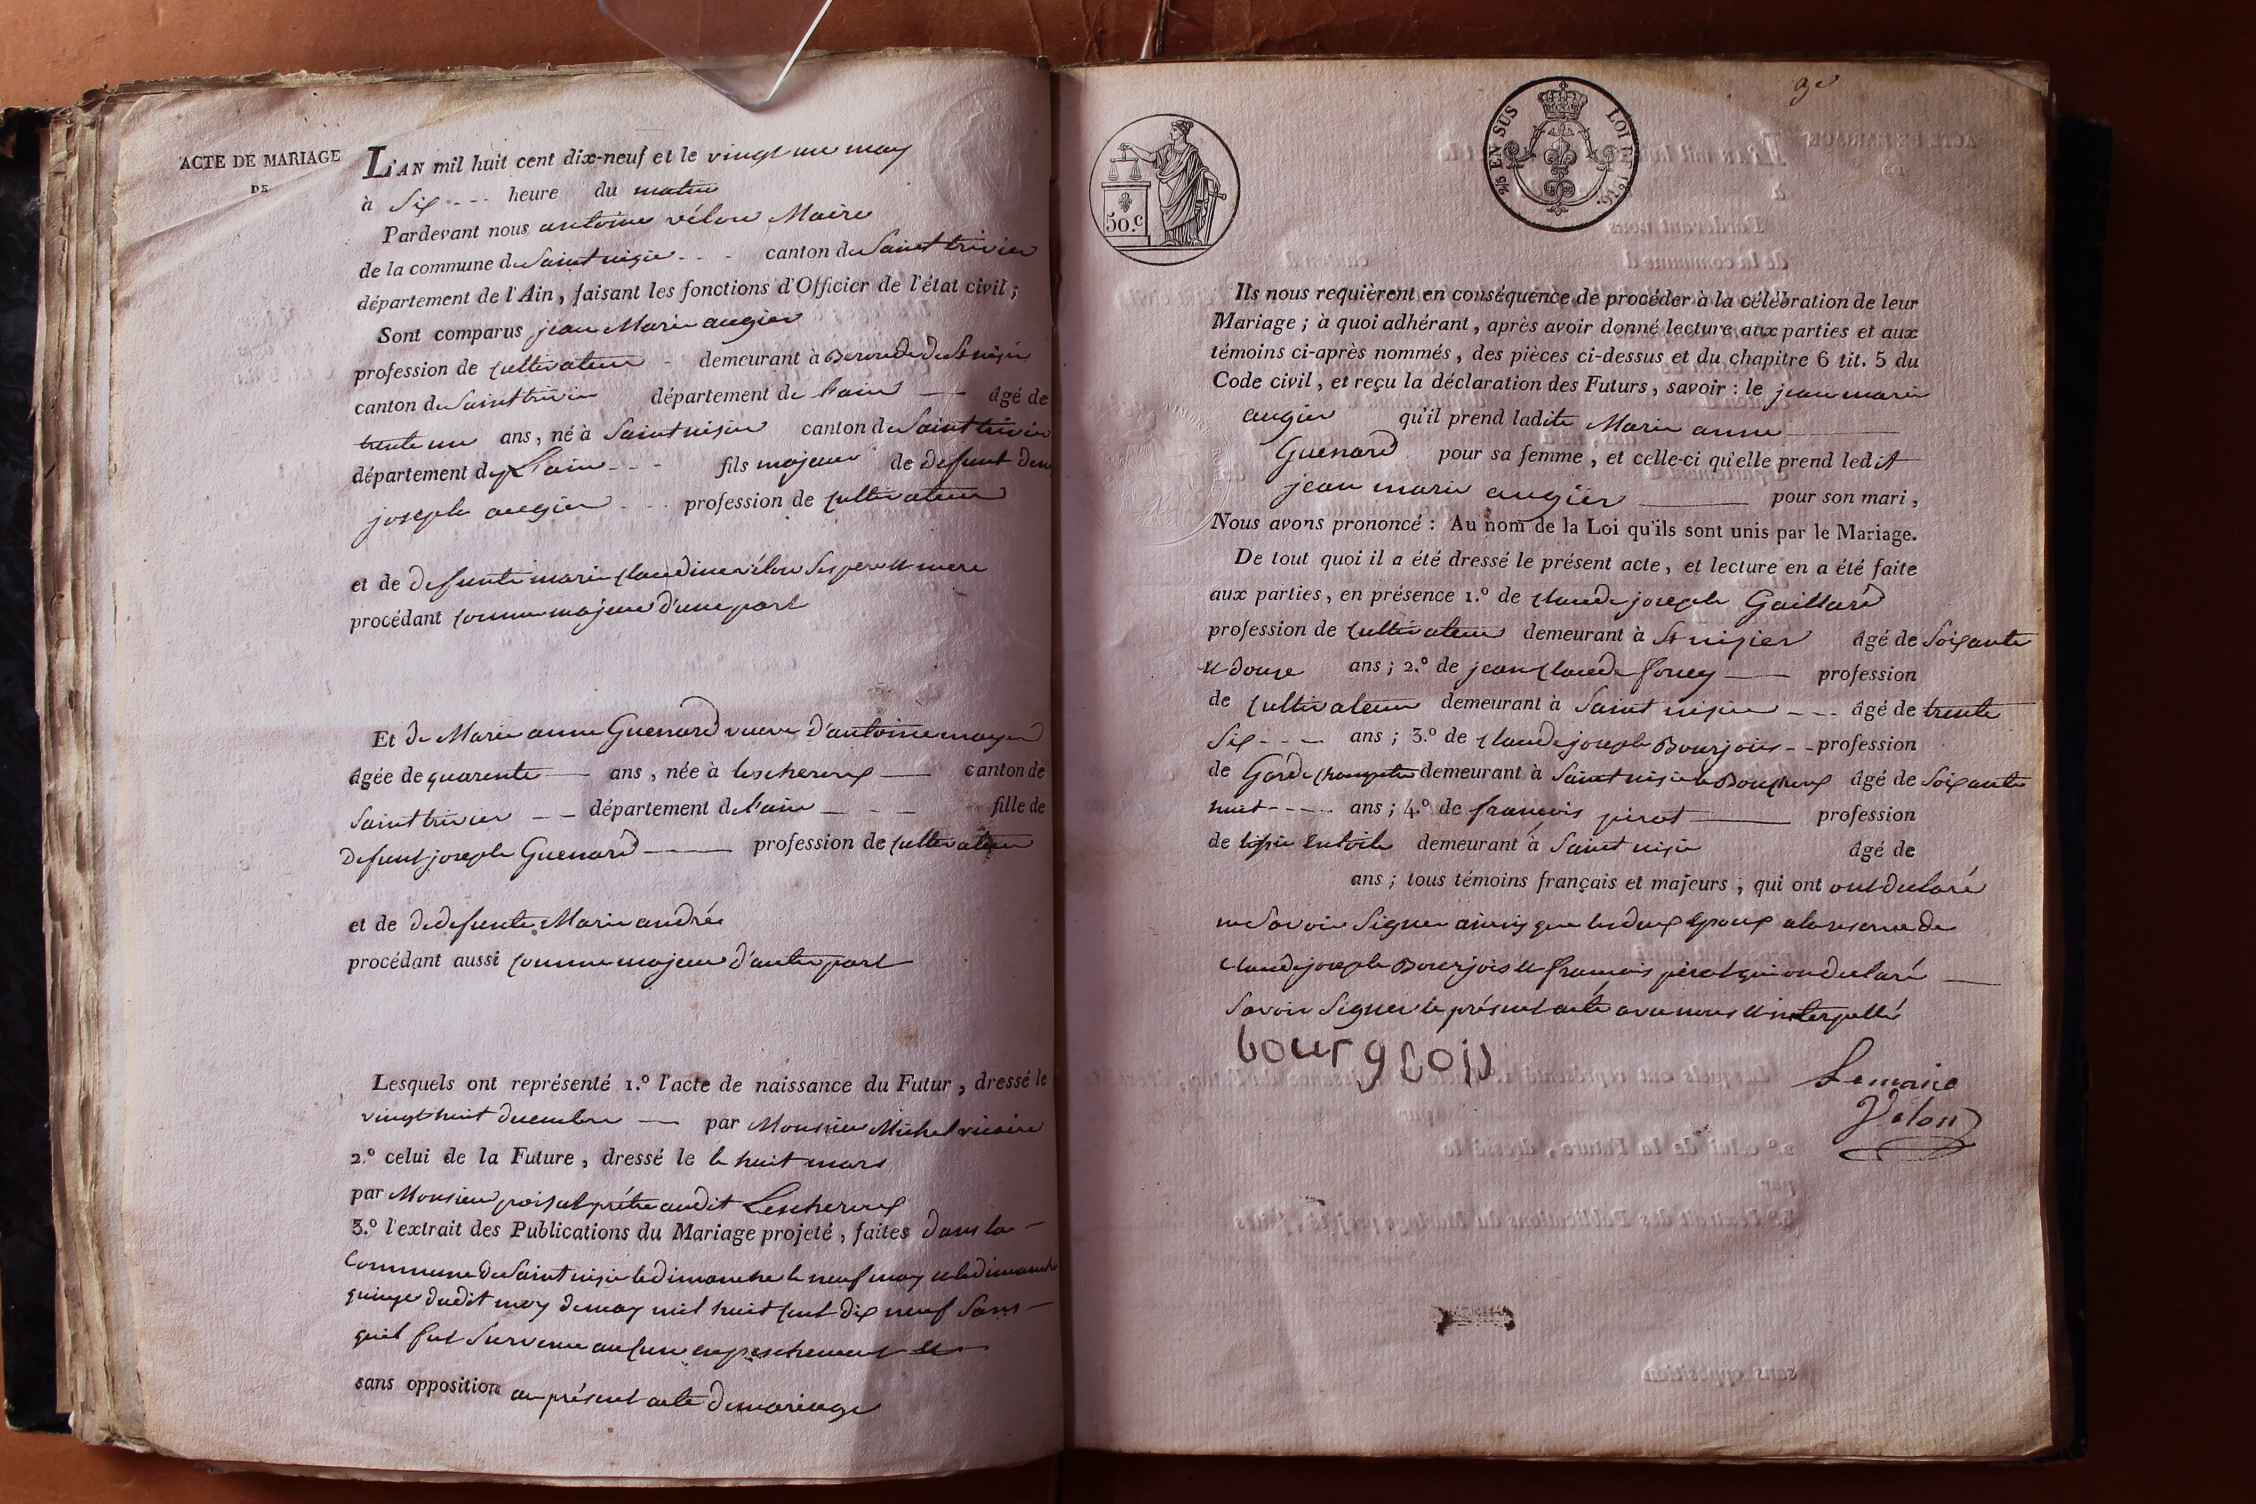 ACTE DE MARIAGE
DE
L'AN mil huit cent dix-neuf et le vingt un may
à Six --- heure du matin
Pardevant nous antoine vélon Maire
de la commune de Saint nizier - - - canton de Saint trivier
département de l'Ain, faisant les fonctions d'Officier de l'état civil ;
Sont comparus jean Marie augier
profession de cultivateur - demeurant à de St nizier
canton de Saint trivier département de l'ain — âgé de
trente un ans, né à Saint nizier canton de Saint trivier
département de l'ain - - - fils majeur de defunt
joseph augier - - - profession de cultivateur
et de defunte marie claudine vélon Ses pere et mere
procédant comme majeur d'une part
Et de Marie anne Guenard veuve d'antoine moyer
âgée de quarente — ans, née à lescheroux — canton de
Saint trivier - - département de l'ain - - - fille de
defunt joseph Guenard — profession de cultivateur
et de de defunte Marie andrée
procédant aussi comme majeur d'autre part
Lesquels ont représenté 1.º l'acte de naissance du Futur, dressé le
vingt huit decembre — par Monsieur Michel vicaire
2.º celui de la Future, dressé le le huit mars
par Monsieur prêtre audit Lescheroux
3.º l'extrait des Publications du Mariage projeté, faites dans la
Commune de Saint nizier le dimanche le neuf may et le dimanche
quinze dudit moy de may mil huit cent dix neuf Sans
quil fut Survenu aucun empeschement et
sans opposition au présent acte de mariage
9e
2/5 EN SUS LOI DE 1816.
50.c
Ils nous requièrent en conséquence de procéder à la célébration de leur
Mariage ; à quoi adhérant, après avoir donné lecture aux parties et aux
témoins ci-après nommés, des pièces ci-dessus et du chapitre 6 tit. 5 du
Code civil, et reçu la déclaration des Futurs, savoir : le jean marie
augier qu'il prend ladite Marie anne
Guenard pour sa femme, et celle-ci qu'elle prend ledit
jean marie augier — pour son mari,
Nous avons prononcé : Au nom de la Loi qu'ils sont unis par le Mariage.
De tout quoi il a été dressé le présent acte, et lecture en a été faite
aux parties, en présence 1.º de claude joseph Gaillard
profession de cultivateur demeurant à St nizier âgé de Soixante
et douze ans ; 2.º de jean claude — profession
de cultivateur demeurant à Saint nizier - - - âgé de trente
Six - - - ans ; 3.º de claude joseph Bourjois - - profession
de Garde champetre demeurant à Saint nizier le Bouchoux âgé de Soixante
huit - - - - ans ; 4.º de françois pirat — profession
de tissier en toile demeurant à Saint nizier âgé de
ans ; tous témoins français et majeurs, qui ont ont declaré
ne Savoir Signer ainsy que les deux epoux a la reserve de
claude joseph Bourjois et françois pirat qui on declaré —
Savoir Signer le présent acte avec nous et interpellé
bourgeois
Le maire
Vélon